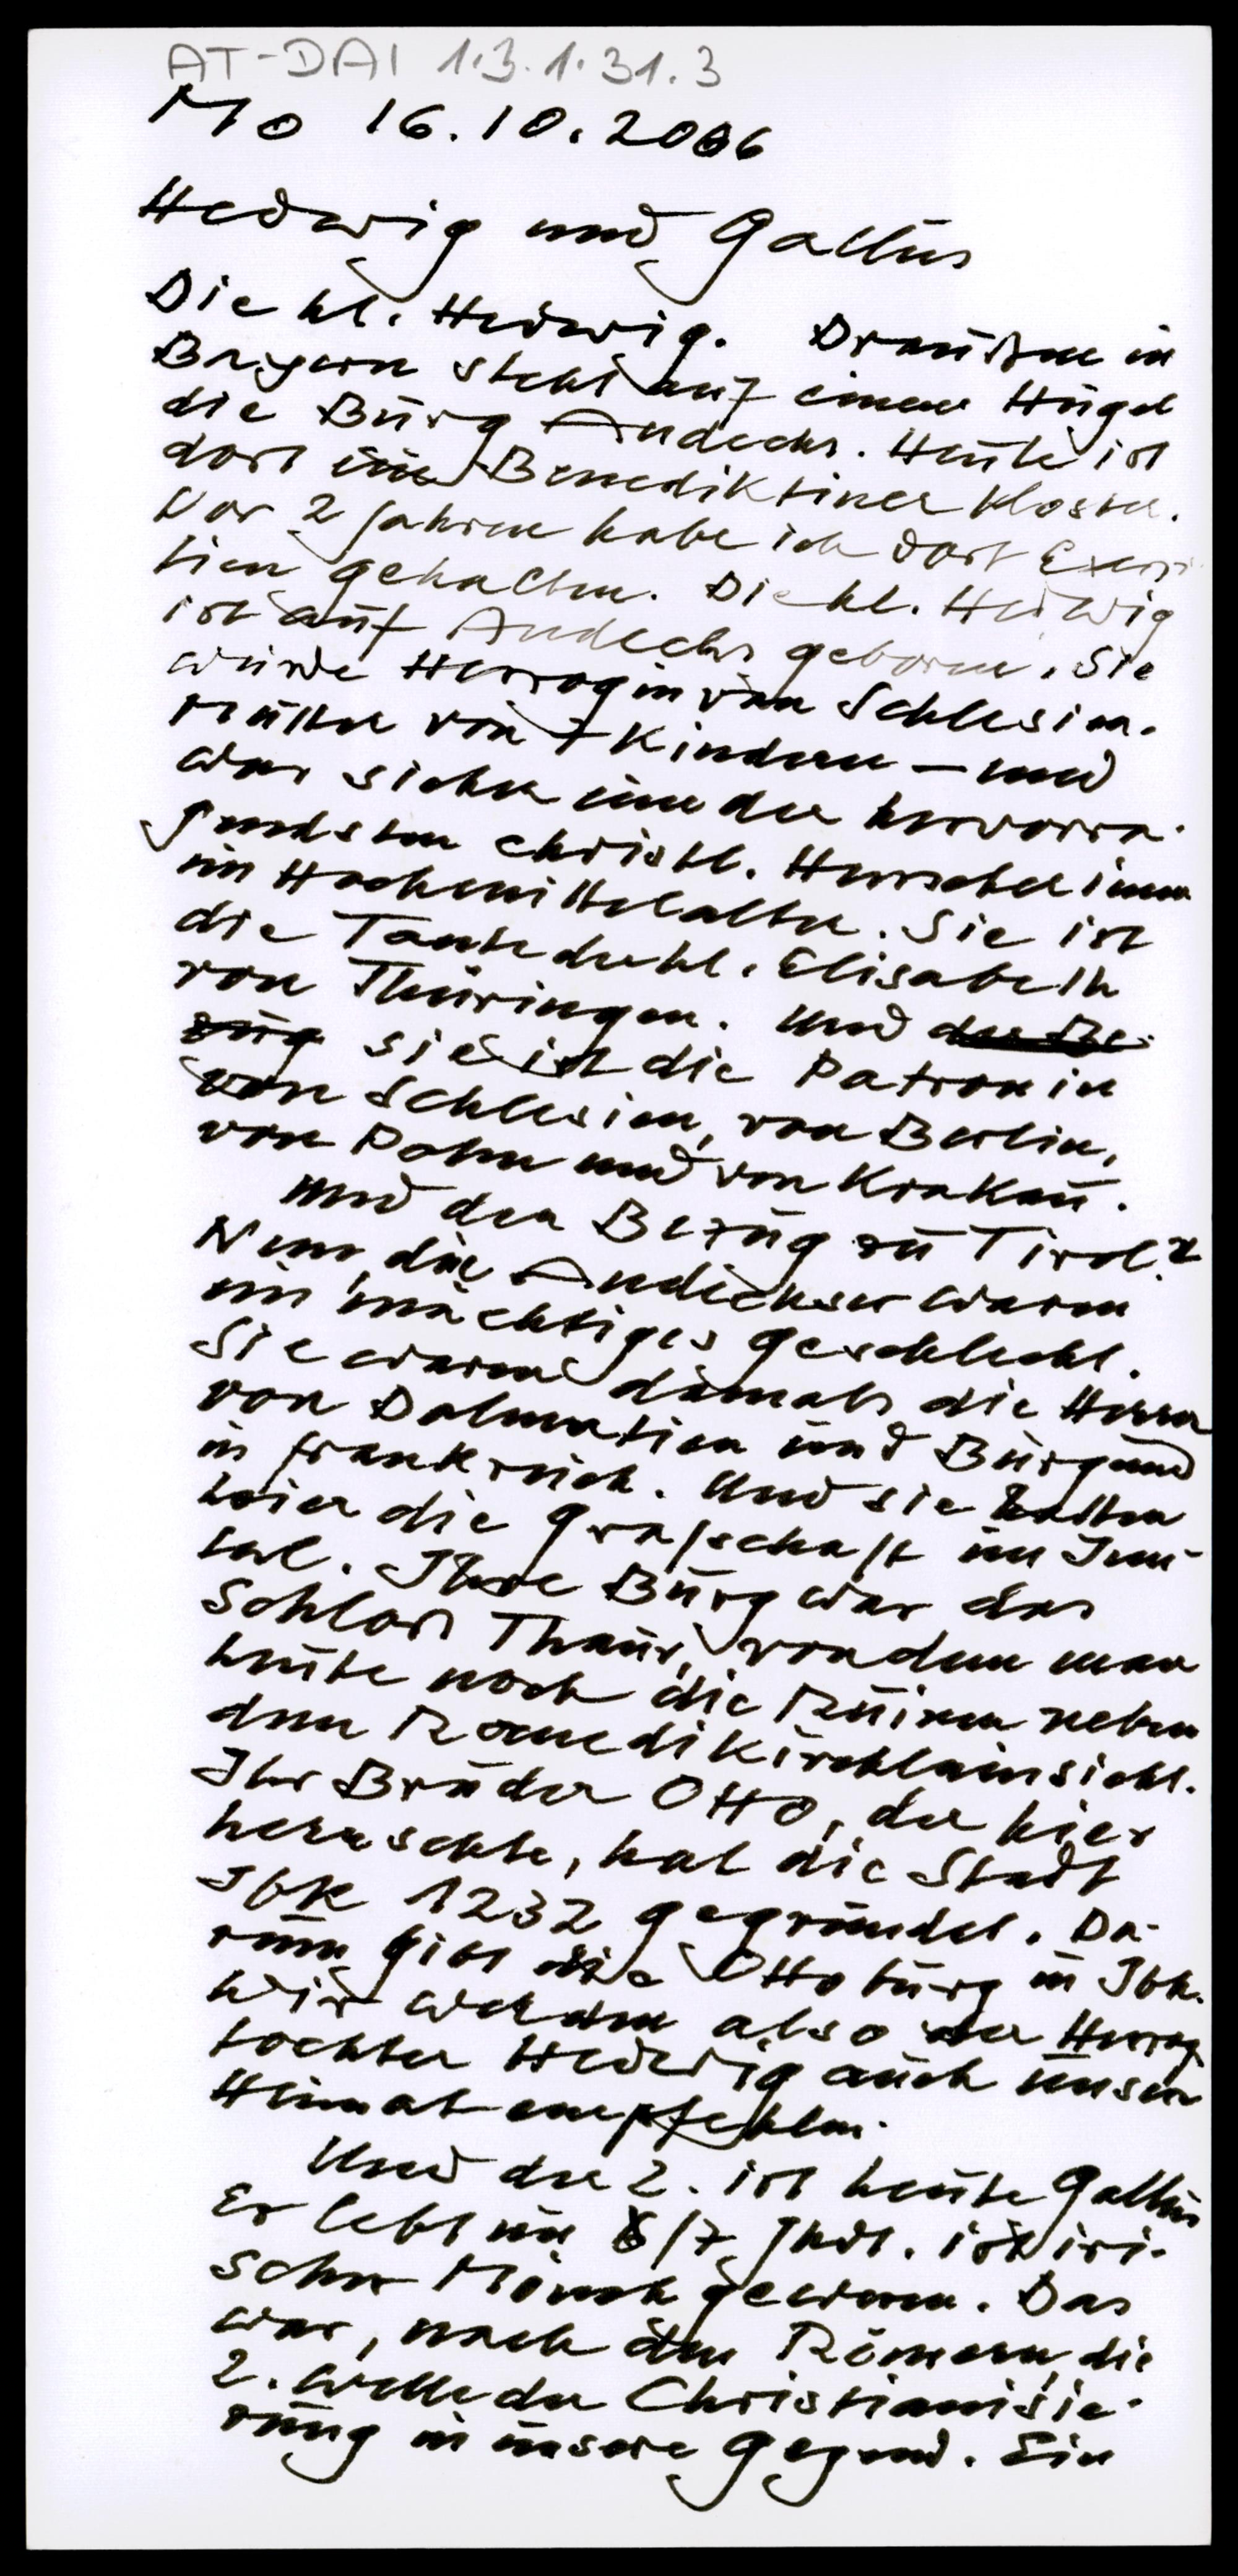 AT-DAI 1.3.1.31.3
Mo 16.10.2006
Hedwig und Gallus
Die hl. Hedwig. Draußen in
Bayern steht auf einem Hügel
die Burg Andechs. Heute ist
dort ein Benediktiner Kloster.
Vor 2 Jahren habe ich dort Exerzi
tien gehalten. Die hl. Hedwig
ist auf Andechs geboren. Sie
wurde Herzogin von Schlesien.
Mutter von 7 Kindern – und
war sicher eine der hervorra-
gendsten christl. Herrscherinnen
im Hochmittelalter. Sie ist
die Tante der hl. Elisabeth
von Thüringen. Und der Be-
zug sie ist die Patronin
von Schlesien, von Berlin,
von Polen und von Krakau.
Und der Bezug zu Tirol?
Nun, die Andechser waren
ein mächtiges Geschlecht.
Sie waren damals die Herren
von Dalmatien und Burgund
in Frankreich. Und sie hatten
hier die Grafschaft im Inn-
tal. Ihre Burg war das
Schloß Thaur, von dem man
heute noch die Ruinen neben
dem Romedikirchlein sieht.
Ihr Bruder Otto, der hier
herrschte, hat die Stadt
Ibk 1232 gegründet. Da-
rum gibt die Ottoburg in Ibk.
Wir werden also der Herzog
tochter Hedwig auch unsere
Heimat empfehlen.
Und der 2. ist heute Gallus
Er lebt im 6/7. Jhdt. ist iri-
scher Mönch gewesen. Das
war, nach den Römern, die
2. Welle der Christianisie-
rung in unsere Gegend. Ein